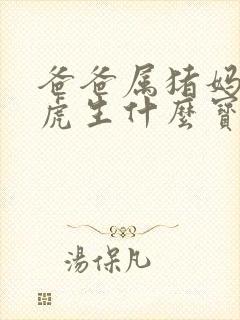 爸爸属猪妈
虎生什麼寶
湯保凡